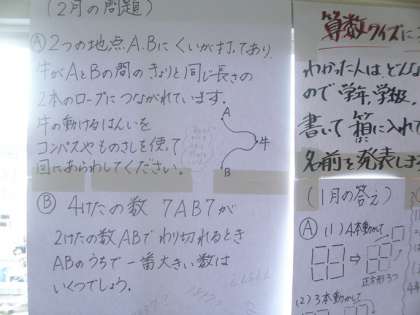 (2月の問題)
Ⓐ2つの地点A.Bにくいが打ってあり
牛がAとBの間のきょりと同じ長さの
2本のロープにつながれています。
牛の動けるはんいを
コンパスやものさしを使って
図にあらわしてください。
A
牛
B
Ⓑ 4けたの数 7AB7が
2けたの数ABでわり切れるとき
ABのうちで一番大きい数は
いくつでしょう。
算数クイズに
わかった人は どんな
ので 学年、学校、
書いて 箱に入れて
名前を発表しま
(1月の答え)
Ⓐ (1)4本動かして
正方形3つ
(2)3本動かして